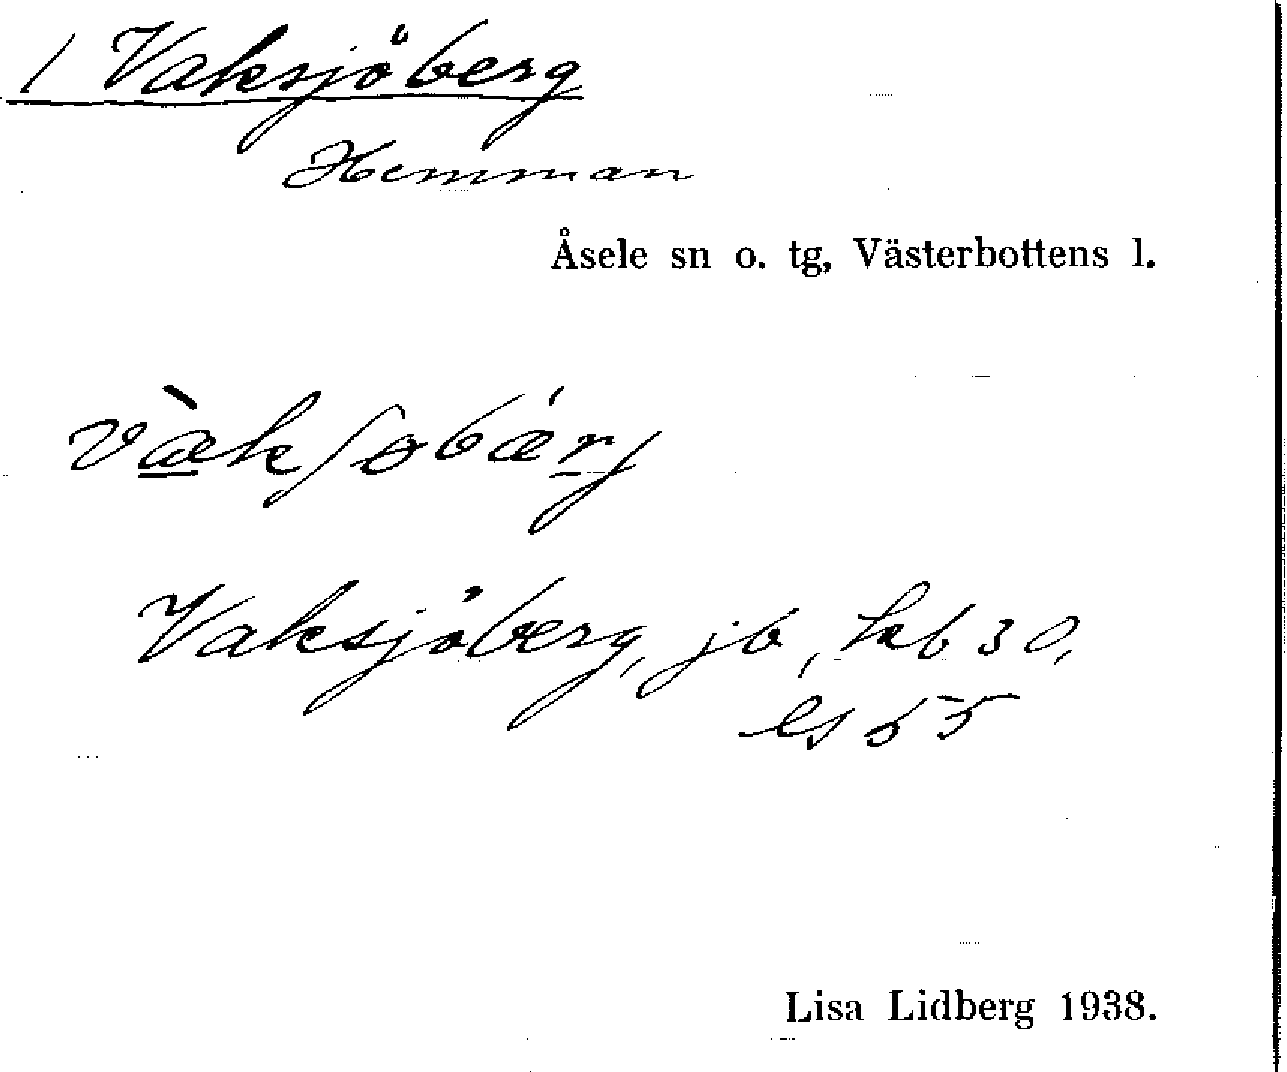 / Vaksjöberg
Hemman
Åsele sn o. tg, Västerbottens l.
væ̀kʃobǽrj
Vaksjöberg, jb, hb 30,
es 55
Lisa Lidberg 1938.